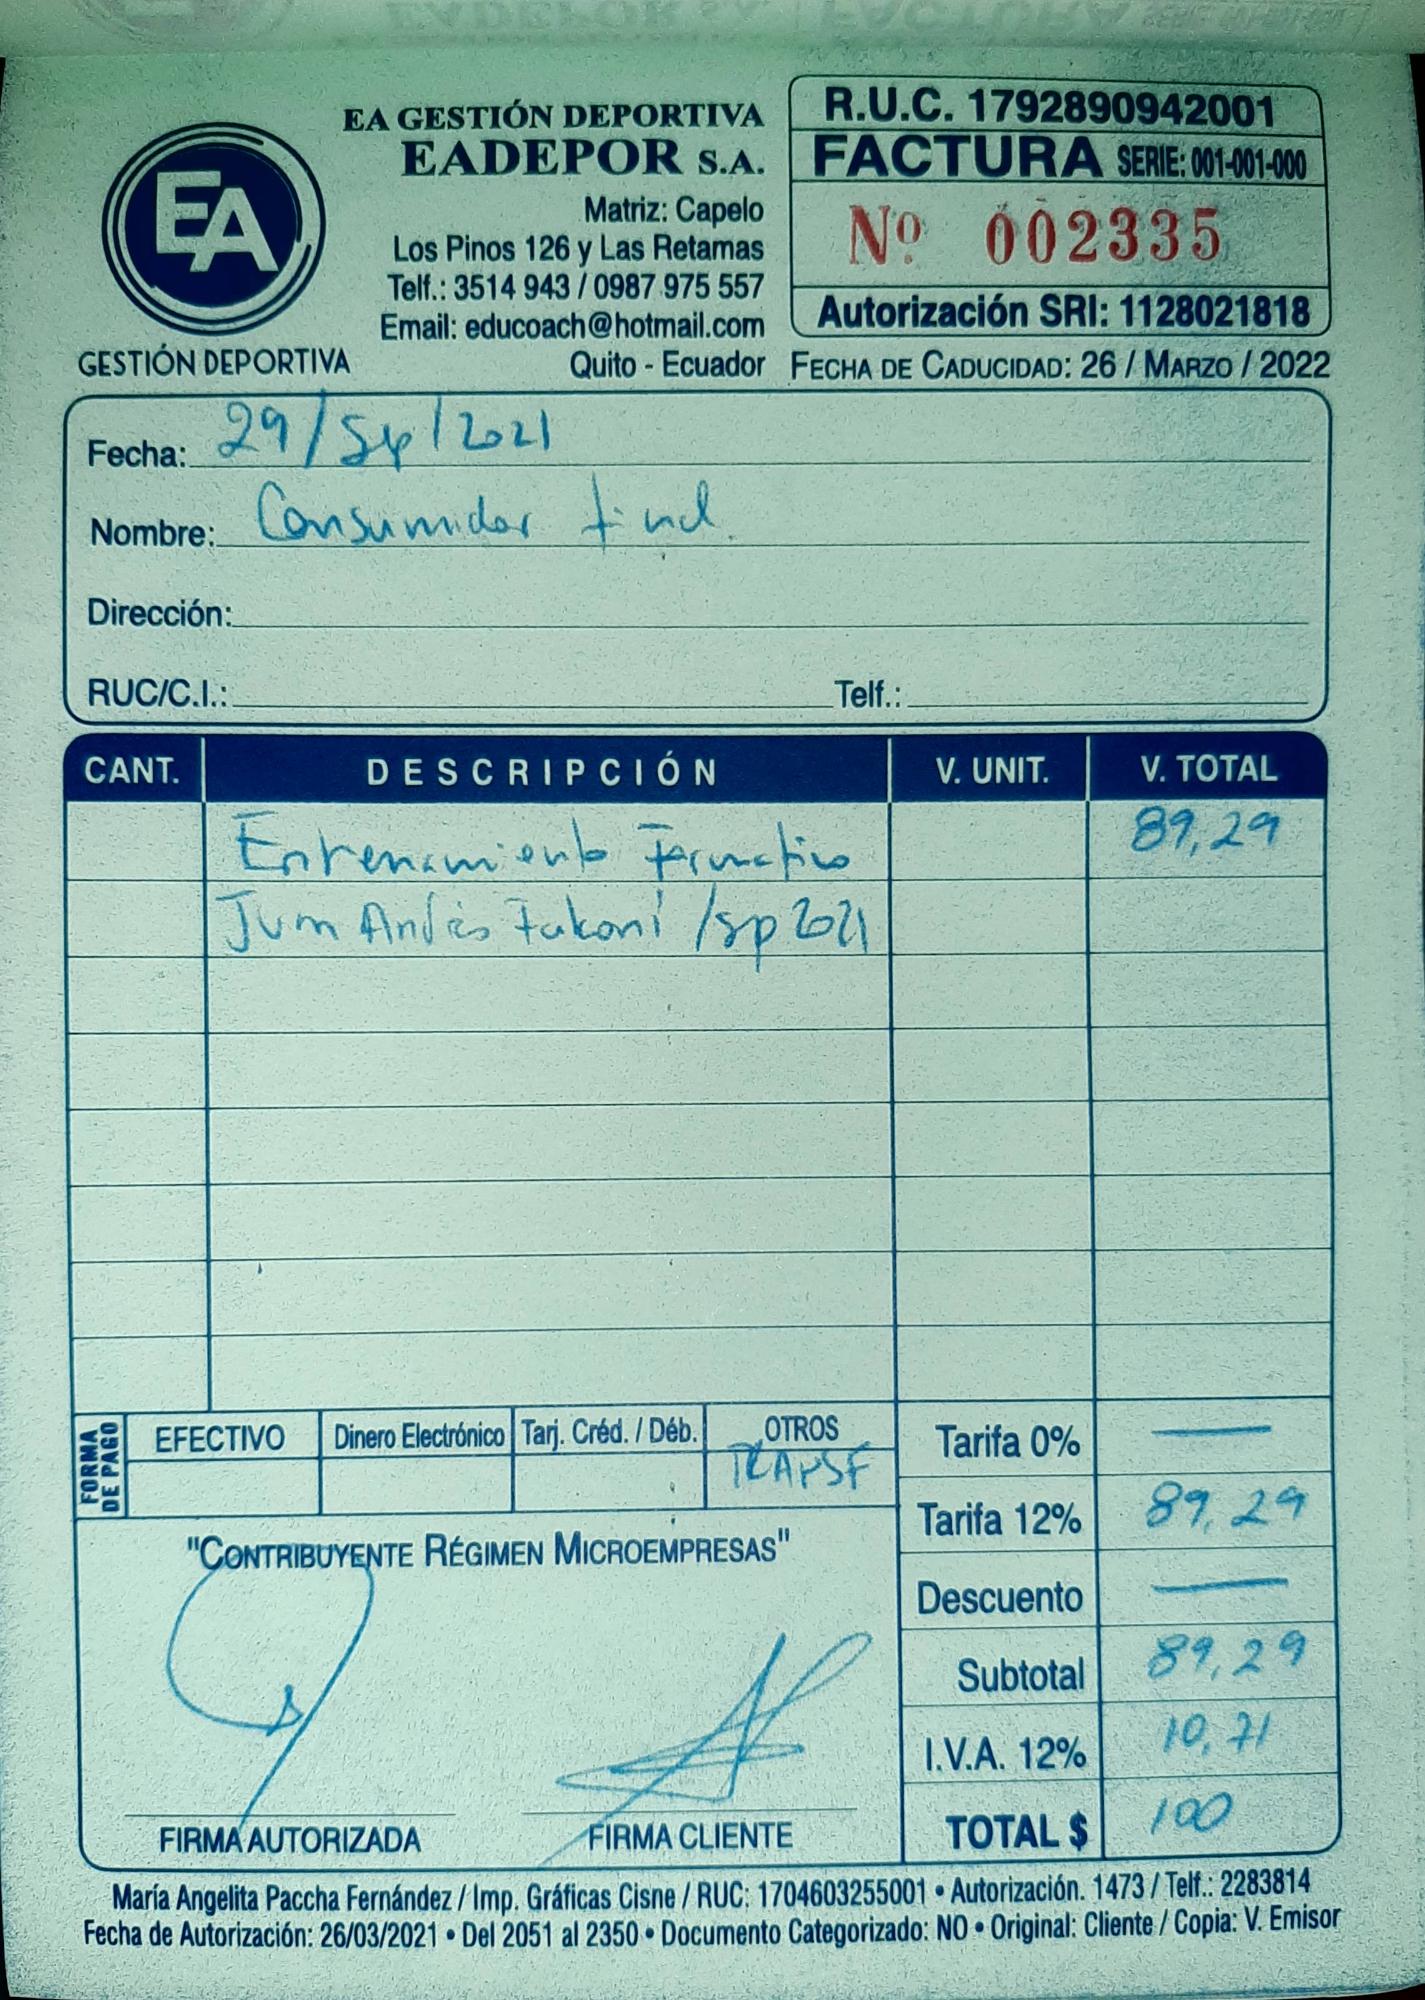 EA GESTIÓN DEPORTIVA
EADEPOR S.A.
Matriz: Capelo
Los Pinos 126 y Las Retamas
Telf.: 3514 943 / 0987 975 557
Email: educoach@hotmail.com
Quito - Ecuador
EA
GESTIÓN DEPORTIVA
R.U.C. 1792890942001
FACTURA SERIE: 001-001-000
Nº 002335
Autorización SRI: 1128021818
FECHA DE CADUCIDAD: 26 / MARZO / 2022
Fecha: 29/Sep/2021
Nombre: Consumidor final.
Dirección:
RUC/C.I.: Telf.:
CANT. DESCRIPCIÓN V. UNIT. V. TOTAL
Entrenamiento Formativo 89,29
Juan Andrés /sep 2021
FORMA DE PAGO
EFECTIVO Dinero Electrónico Tarj. Créd. / Déb. OTROS
Tarifa 0% —
Tarifa 12% 89,29
"CONTRIBUYENTE RÉGIMEN MICROEMPRESAS"
Descuento —
Subtotal 89,29
I.V.A. 12% 10,71
TOTAL $ 100
FIRMA AUTORIZADA FIRMA CLIENTE
María Angelita Paccha Fernández / Imp. Gráficas Cisne / RUC: 1704603255001 • Autorización. 1473 / Telf.: 2283814
Fecha de Autorización: 26/03/2021 • Del 2051 al 2350 • Documento Categorizado: NO • Original: Cliente / Copia: V. Emisor